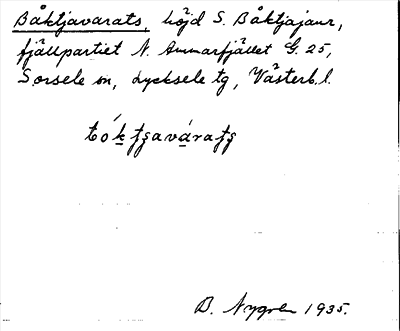 Båktjavarats, höjd S. Båktjajaur,
fjällpartiet N. Ammarfjället G. 25,
Sorsele sn, Lycksele tg, Västerb. l.
bók̠tʂavàratʂ
B. Nygren 1935.